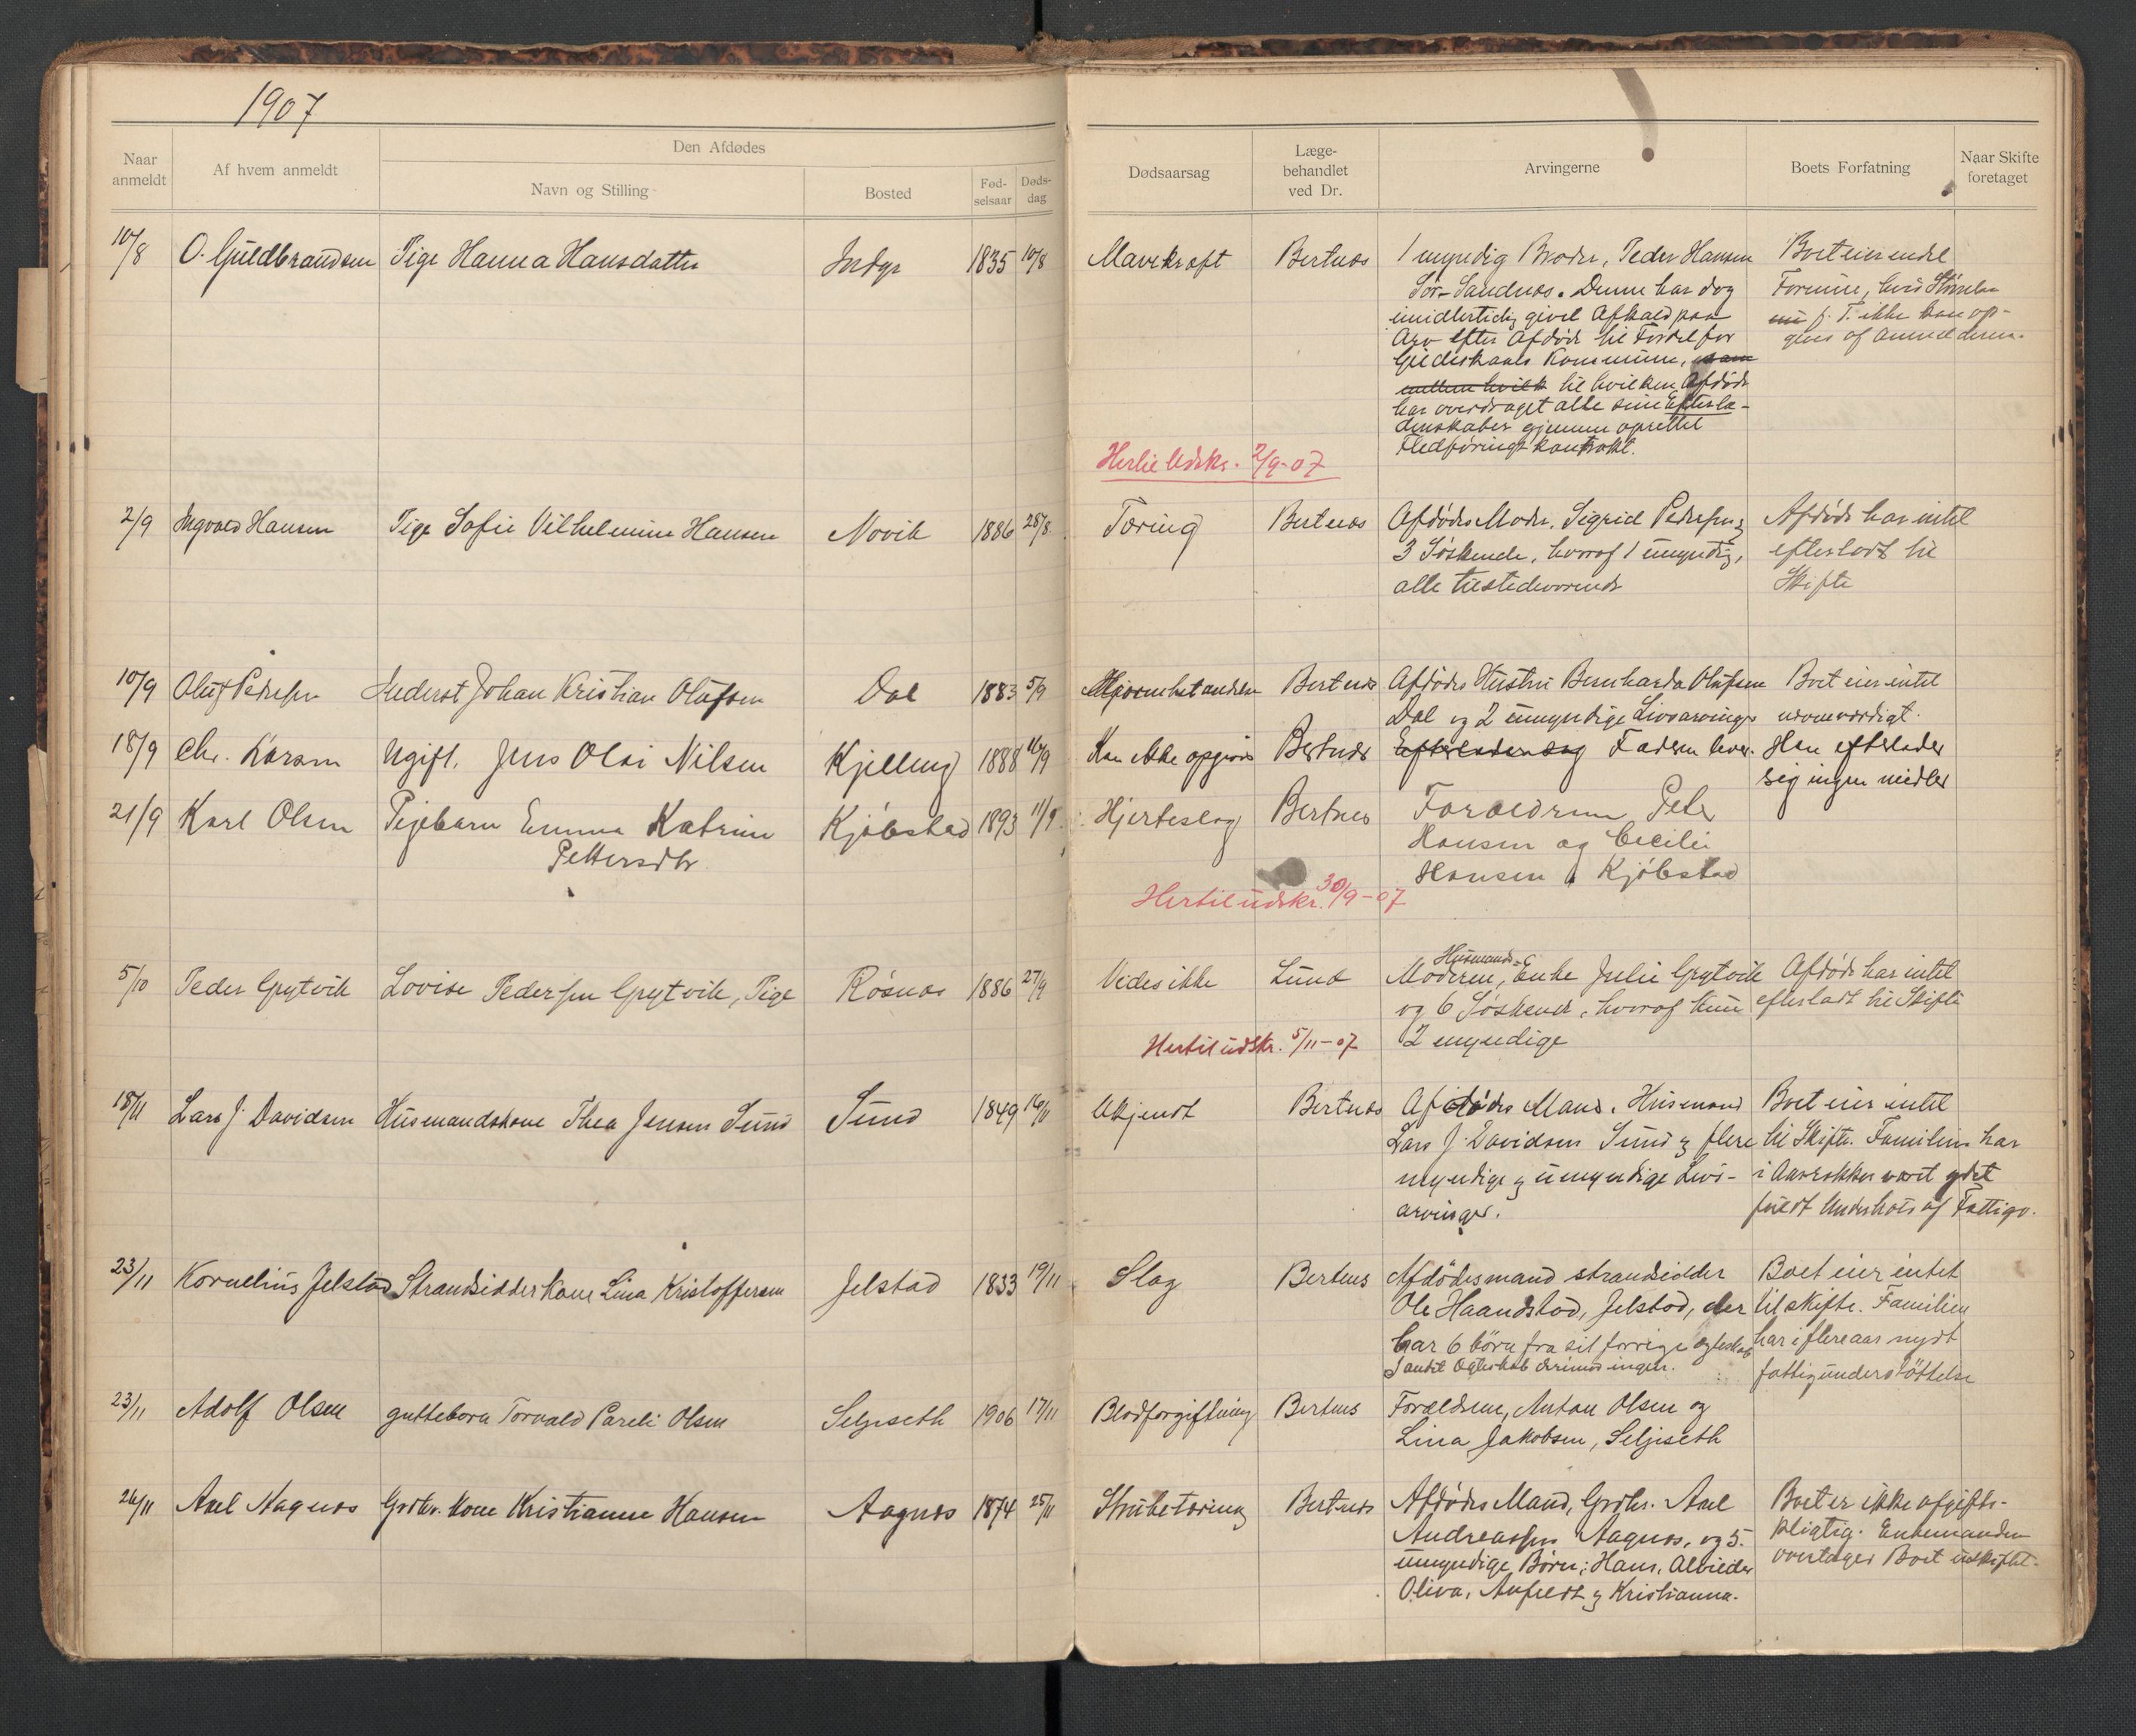 1907
Naar anmeldt
Af hvem anmeldt
Den Afdødes
Navn og Stilling
Bosted
Fød-selsaar
Døds-dag
Dødsaarsag
Læge-behandlet ved Dr.
Arvingerne
Boets Forfatning
Naar Skifte foretaget
10/8 O. Guldbrandsen Pige Hanna Hansdatter Indyr 1835 10/8 Mavekræft Bertnæs
1 myndig Broder, Peder Hansen
Sør-Sandnæs. Denne har dog
imidlertidig givet Afkald paa
Arv efter Afdøde til Fordel for
Gildeskaals Kommune, som
mellem hvilk til hvilken Afdøde
har overdraget alle sine Efterla-
denskaber gjennem oprettet
Fledføringskontrakt.
Boet eier endel
Formue, hvis Størrelse
nu p. T. ikke kan op-
gives af Anmelderen.
Hertil Udskr. 2/9-07
2/9 Ingvald Hansen Pige Sofie Vilhelmine Hansen Novik 1886 28/8 Tæring Bertnæs
Afdødes Moder, Sigrid Pedersen og
3 Søskende, hvoraf 1 umyndig,
alle tilstedeværende
Afdøde har intet
efterladt til
Skifte
10/9 Oluf Pedersen Inderst Johan Kristian Olufsen Dal 1883 5/9 Hjernebetændelse Bertnæs
Afdødes Hustru Bernharda Olufsen
Dal og 2 umyndige Livsarvinger
Boet eier intet
nævneværdigt.
18/9 Chr. Larsen Ugift. Jens Olai Nilsen Kjelling 1888 16/9 Kan ikke opgives Bertnæs
Faderen lever.
Han efterlader
sig ingen midler
21/9 Karl Olsen Pigebarn Emma Katrine
Pettersdtr. Kjøbstad 1893 11/9 Hjerteslag Bertnes
Forældrene Peter
Hansen og Cecilie
Hansen Kjøbstad
Hertil udskr. 30/9-07
5/10 Peder Grytvik Lovise Pedersen Grytvik, Pige Røsnæs 1886 27/9 Vides ikke Lund
Husmands-
Moderen, Enke Julie Grytvik
og 6 Søskende, hvoraf kun
2 myndige
Afdøde har intet
efterladt til Skifte
Hertil udskr. 5/11-07
18/11 Lars J. Davidsen Husmandskone Thea Jensen Sund Sund 1849 16/11 Ukjendt Bertnæs
Afdødes Mand, Husmand
Lars J. Davidsen Sund og flere
myndige og umyndige Livs-
arvinger.
Boet eier intet
til Skifte. Familien har
i Aarrækker været ydet
fuldt Underhold af Fattigv.
23/11 Kornelius Jelstad Strandsidderkone Lina Kristoffersen Jelstad 1833 19/11 Slag Bertnes
Afdødes mand strandsidder
Ole Haandstad, Jelstad, der
har 6 børn fra sit forrige ægteskab
I andet ægteskab derimod ingen.
Boet eier intet
til skifte. Familien
har i flere aar nydt
fattigunderstøttelse
23/11 Adolf Olsen guttebarn Torvald Pareli Olsen Seljeseth 1906 17/11 Blodforgiftning Bertnes
Forældrene, Anton Olsen og
Lina Jakobsen, Seljeseth
26/11 Axel Aagnæs Grdbr. Kone Kristianne Hansen Aagnæs 1874 25/11 Strubetæring Bertnæs
Afdødes Mand, Grdbr. Axel
Andreassen Aagnæs, og 5
umyndige Børn: Hans,
Oliva, Anfeldt og Kristianna.
Boet er ikke afgifts-
pligtig. Enkemanden
overtager Boet uskiftet.